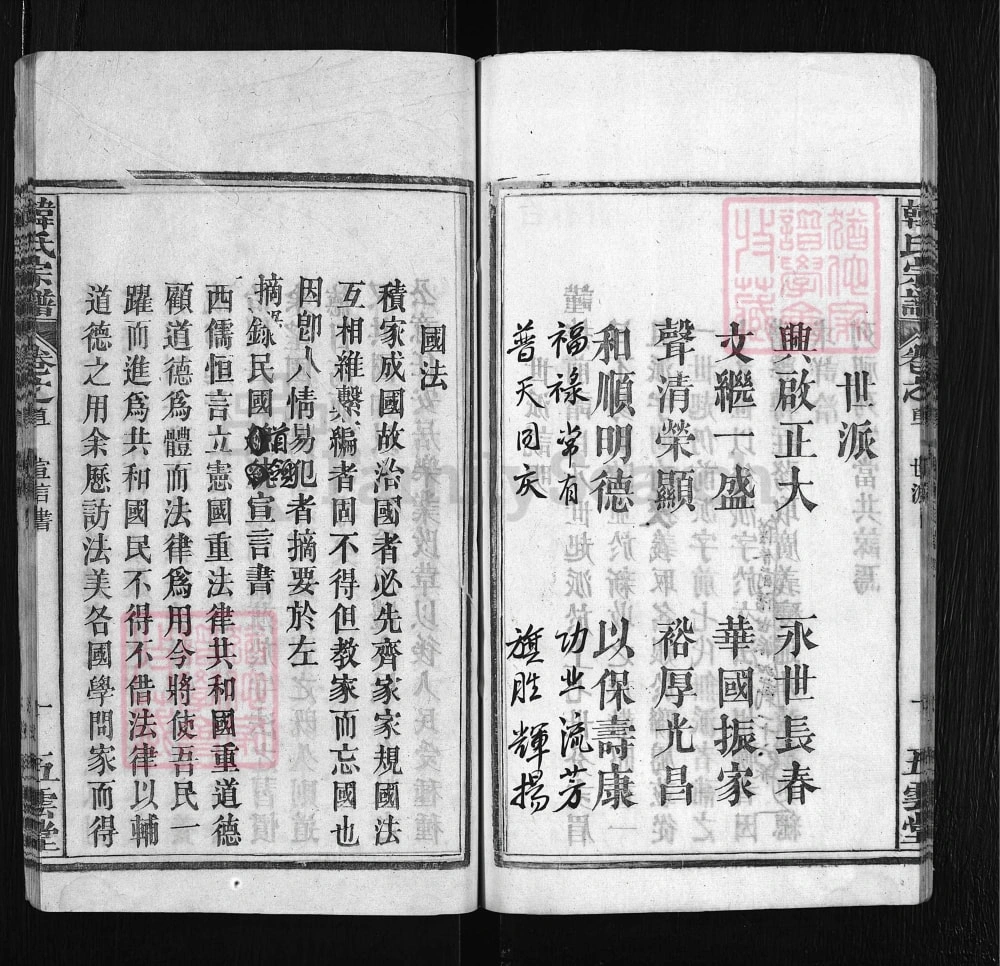 世派
興啟正大 永世長春
文繼一盛 華國振家
聲清榮顯 裕厚光昌
和順明德 以保壽康
福祿常有 功业流芳
普天同庆 旗胜輝揚
五雲堂
韓氏宗譜 卷之首 宣言書 五雲堂
國法
積家成國故治國者必先齊家家規國法
互相維繫編者固不得但教家而忘國也
因卽人情易犯者摘要於左
摘錄民國宣言書
西儒恒言立憲國重法律共和國重道德
顧道德爲體而法律爲用今將使吾民一
躍而進爲共和國民不得不借法律以輔
道德之用余歷訪法美各國學問家而得